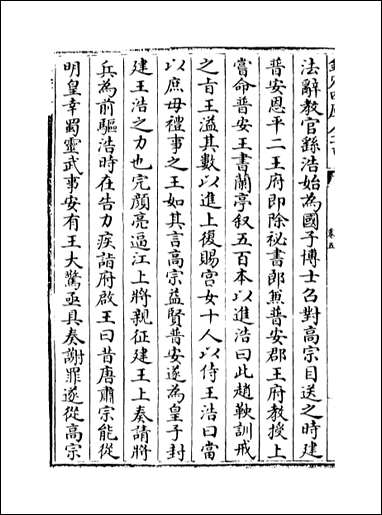 法辭教官繇浩始為國子博士召對高宗目送之時建
普安恩平二王府即除祕書郎兼普安郡王府教授上
嘗命普安王書蘭亭叙五百本以進浩曰此趙鞅訓戒
之旨王溢其數以進上復賜宫女十人以侍王浩曰當
以庶母禮事之王如其言高宗益賢普安遂為皇子封
建王浩之力也完顔亮逼江上將親征建王上奏請將
兵為前驅浩時在告力疾請府啟王曰昔唐肅宗能從
明皇幸蜀靈武事安有王大驚亟具奏謝罪遂從高宗